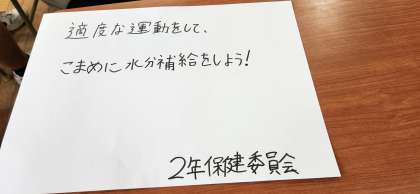 適度な運動をして、
こまめに水分補給をしよう!
2年保健委員会